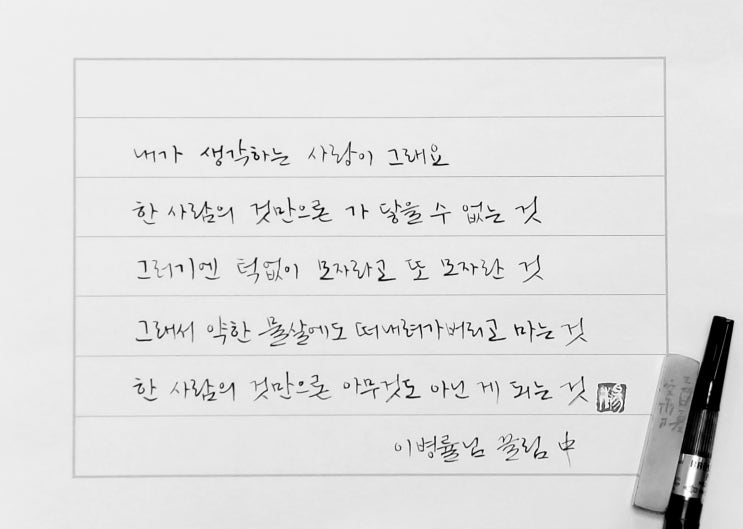 내가 생각하는 사랑이 그래요
한 사람의 것만으론 가 닿을 수 없는 것
그러기엔 턱없이 모자라고 또 모자란 것
그래서 약한 물살에도 떠내려가버리고 마는 것
한 사람의 것만으론 아무것도 아닌 게 되는 것
이병률님 끌림 中